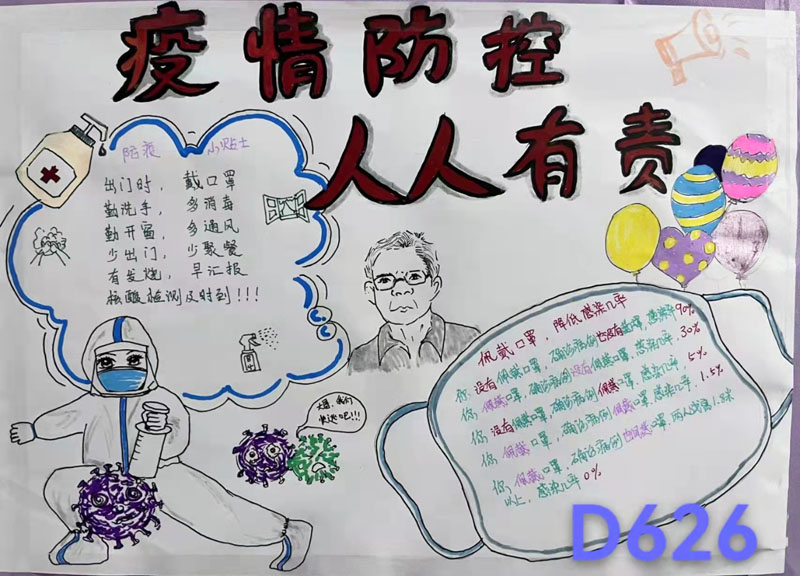 疫情防控
人人有责
防疫 小贴士
出门时， 戴口罩
勤洗手， 多消毒
勤开窗， 多通风
少出门， 少聚餐
有发烧， 早汇报
核酸检测及时到！！！
大哥，我们
快逃吧！！！
佩戴口罩，降低感染几率
你，没有佩戴口罩，确诊病例也没有戴口罩，感染率90%
你，佩戴口罩，确诊病例没有佩戴口罩，感染几率，30%
你，没有佩戴口罩，确诊病例佩戴口罩，感染几率，5%
你，佩戴口罩，确诊病例佩戴口罩，感染几率，1.5%
你，佩戴口罩，确诊病例也佩戴口罩，两人戒备1.8米
以上，感染几率0%
D626